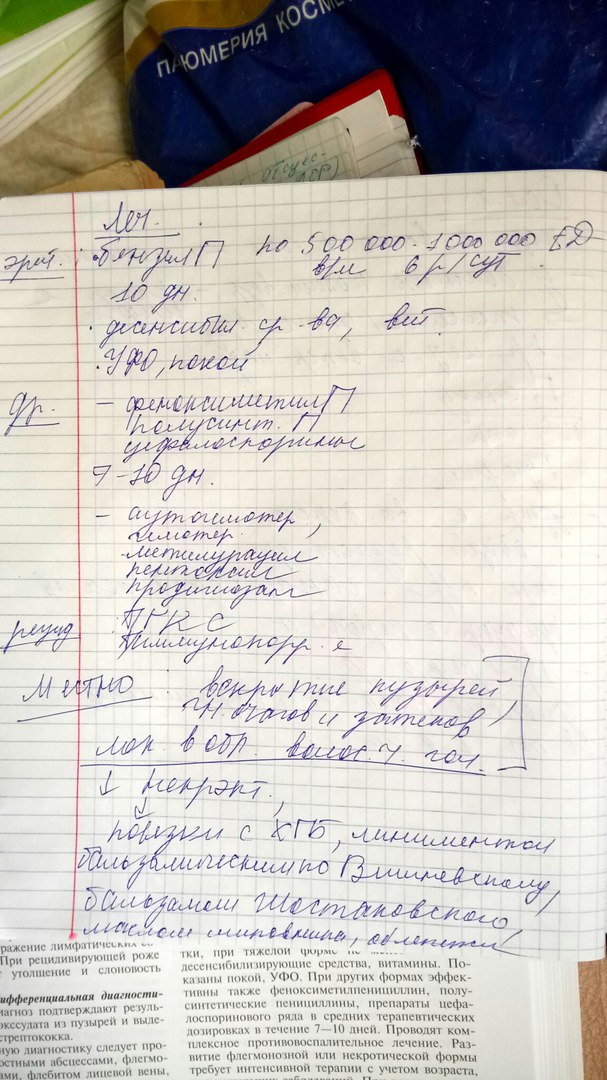 ПАЮМЕРИЯ КОСМЕ
Леч.
эрит. : бензилП по 500 000 - 1000 000 ЕД
в/м 6 р/сут
10 дн.
· десенсибил. ср-ва, вит.
· УФО, покой
др. – феноксиметилП
полусинт. П
цефалоспорины
7-10 дн.
– аутогемотер,
гемотер.
метилурацил
пентоксил
продигиозан
рецид ГКС
Местно : вскрытие пузырей,
гн. очагов и затеков
лок. в обл. волос. ч. гол.
↓ некрэкт.,
↓
повязки с ХГБ, линиментом
бальзамическим по Вишневскому,
бальзамом Шостаковского,
маслом шиповника, облепихи
ражение лимфатических со
При рецидивирующей роже
т утолщение и слоновость
ифференциальная диагности-
иагноз подтверждают резуль-
экссудата из пузырей и выде-
стрептококка.
ную диагностику следует про-
остными абсцессами, флегмо-
ами, флебитом лицевой вены,
тки, при тяжелой форме не
десенсибилизирующие средства, витамины. По-
казаны покой, УФО. При других формах эффек-
тивны также феноксиметилпенициллин, полу-
синтетические пенициллины, препараты цефа-
лоспоринового ряда в средних терапевтических
дозировках в течение 7—10 дней. Проводят ком-
плексное противовоспалительное лечение. Раз-
витие флегмонозной или некротической формы
требует интенсивной терапии с учетом возраста,